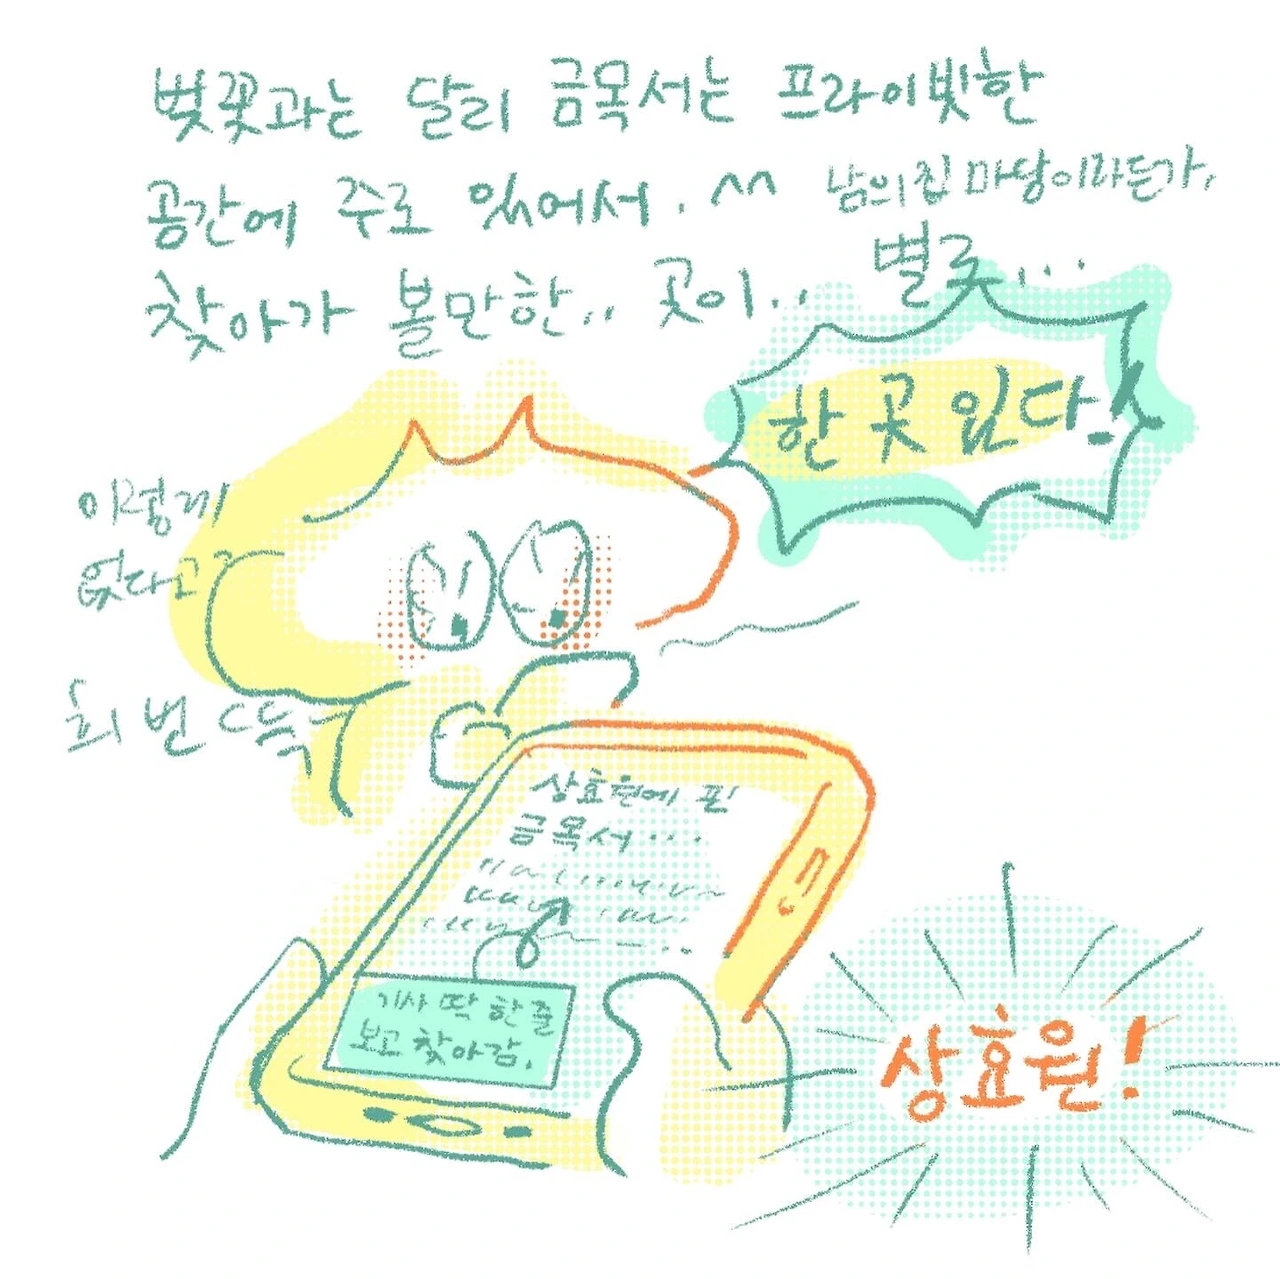 벚꽃과는 달리 금목서는 프라이빗한
공간에 주로 있어서. ^^ 남의 집 마당이라든가,
찾아가 볼만한.. 곳이.. 별로...
한 곳 있다!
이렇게
없다고?
회 번 뜩
상효원에 핀
금목서...
기사 딱 한 줄
보고 찾아감.
상효원!